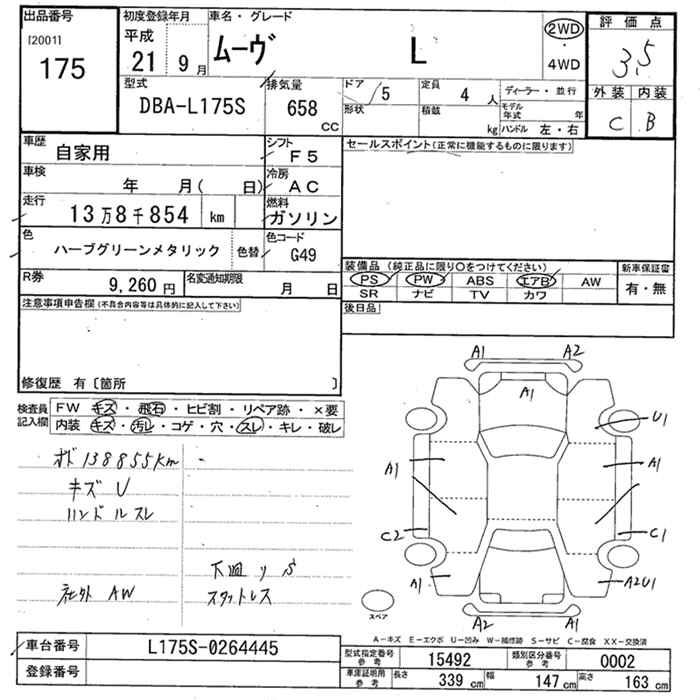 出品番号
[2001]
175
初度登録年月
平成
21 9月
車名・グレード
ムーヴ L
2WD
・
4WD
評価点
3.5
外装 内装
C B
型式
DBA-L175S
排気量
658
cc
ドア 5
形状
定員 4人
積載 kg
ディーラー・並行
モデル年式 年
ハンドル 左・右
車歴
自家用
シフト
F5
セールスポイント(正常に機能するものに限ります)
車検
年 月( 日)
冷房
AC
走行
13万8千854 km
燃料
ガソリン
色
ハーブグリーンメタリック
色替
色コード
G49
R券
9,260円
名変通知期限
月 日
装備品(純正品に限り○をつけてください)
PS PW ABS エアB AW
SR ナビ TV カワ
新車保証書
有・無
注意事項申告欄(不具合内容等は具体的に記入して下さい)
後日品
修復歴 有〔箇所 〕
検査員記入欄
FW キズ・飛石・ヒビ割・リペア跡・×要
内装 キズ・汚レ・コゲ・穴・スレ・キレ・破レ
オド 138855km
キズ U
ハンドルスレ
社外 AW
下廻り S
スタットレス
A1 A2
A1
U1
A1 A1
C2 C1
A1 A2U1
A2 A1
スペア
A-キズ E-エクボ U-凹み W-補修跡 S-サビ C-腐食 XX-交換済
車台番号 L175S-0264445
登録番号
型式指定番号参考 15492
類別区分番号参考 0002
車庫証明用参考 長さ 339cm 幅 147cm 高さ 163cm